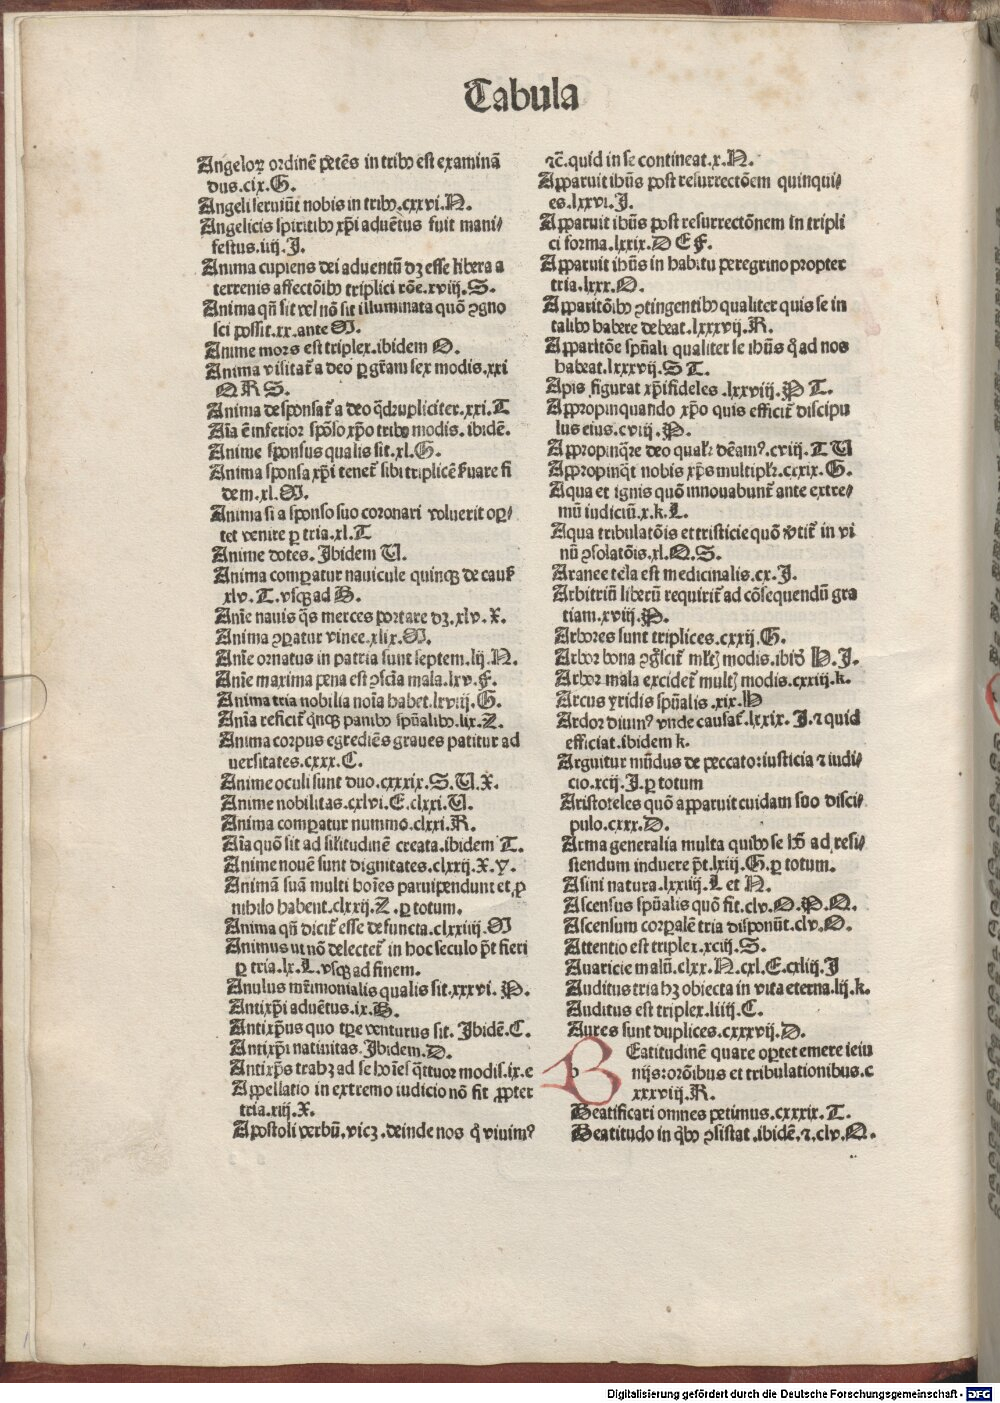 Tabula
Angeloꝝ ordinē petēs in tribꝰ est examinā
dus.cix.G.
Angeli seruiūt nobis in tribꝰ.cxxvi.N.
Angelicis spiritibꝰ xp̄i aduētus fuit mani⸗
festus.iiij.J.
Anima cupiens dei aduentū dꝫ esse libera a
terrenis affectōibꝰ triplici rōe.xviij.S.
Anima qn̄ sit vel nō sit illuminata quō ꝯgno
sci possit.xx.ante M.
Anime mors est triplex.ibidem O.
Anima visitat᷑ a deo ꝑ gr̄am sex modis.xxi
Q R S.
Anima desponsat᷑ a deo q̄drupliciter.xxi.T
Aīa ē inferior spōso xp̄o tribꝰ modis.ibidē.
Anime sponsus qualis sit.xl.G.
Anima sponsa xp̄i tenet᷑ sibi triplicē ẜuare fi
dem.xl.M.
Anima si a sponso suo coronari voluerit opꝛ⸗
tet venire ꝑ tria.xl.T
Anime dotes. Ibidem U.
Anima comꝑatur nauicule quinqꝫ de cauẜ
xlv.T.vsqꝫ ad B.
Anīe nauis q̄s merces portare dꝫ.xlv.X.
Anima ꝯꝑatur vinee.xlix.M.
Anīe ornatus in patria sunt septem.lij.N.
Anīe maxima pena est ꝯsciā mala.lxv.F.
Anima tria nobilia noīa habet.lxviij.G.
Anīa reficit᷑ q̄nqꝫ panibꝰ spūalibꝰ.lix.Z.
Anima corpus egrediēs graues patitur ad
uersitates.cxxx.C.
Anime oculi sunt duo.cxxxix.S.U.X.
Anime nobilitas.cxlvi.E.clxxi.U.
Anima comꝑatur nummo.clxxi.R.
Aīa quō sit ad silitudinē creata.ibidem T.
Anime nouē sunt dignitates.clxxij.X.y.
Animā suā multi hoīes paruipendunt et ꝓ
nihilo habent.clxxij.Z.ꝑ totum.
Anima qn̄ dicit᷑ esse defuncta.clxxiiij.M
Animus ut nō delectet᷑ in hoc seculo p̄t fieri
ꝑ tria.lx.L.vsqꝫ ad finem.
Anulus mr̄imonialis qualis sit.xxxvi.P.
Antixp̄i aduētus.ix.B.
Antixp̄us quo tꝑe venturus sit. Ibidē.C.
Antixp̄i natiuitas.Ibidem.D.
Antixp̄s trahꝫ ad se hoīes q̄ttuor modis.ix.e
Appellatio in extremo iudicio nō fit ꝓpter
tria.xiij.X.
Apostoli verbū.vicꝫ.deinde nos q̄ viuimꝰ
⁊c̄.quid in se contineat.x.N.
Apparuit ihūs post resurrectōem quinqui⸗
es.lxxvi.J.
Apparuit ihūs post resurrectōnem in tripli
ci forma.lxxix.D E F.
Apparuit ihūs in habitu peregrino propter
tria.lxxx.O.
Apparitōibꝰ ꝯtingentibꝰ qualiter quis se in
talibꝰ habere debeat.lxxxvij.R.
Apparitōe spūali qualiter se ihūs q̊ ad nos
habeat.lxxxvij.S T.
Apis figurat xp̄ifideles.lxxviij.P T.
Appropinquando xp̄o quis efficit᷑ discipu
lus eius.cviij.P.
Appropinq̄re deo qualr̄ deāmꝰ.cviij.T U
Appropinq̄t nobis xp̄s multiplr̄.cxxix.G.
Aqua et ignis quō innouabunt᷑ ante extre⸗
mū iudiciū.x.k.L.
Aqua tribulatōis et tristicie quō v̄tit᷑ in vi
nū ꝯsolatōis.xl.Q.S.
Aranee tela est medicinalis.cx.J.
Arbitriū liberū requirit᷑ ad cōsequendū gra
tiam.xviij.P.
Arbores sunt triplices.cxxij.G.
Arbor bona ꝯgscit᷑ ml̄tꝭ modis.ibid̄ H.J.
Arbor mala excidet᷑ multꝭ modis.cxxiij.k.
Arcus yridis spūalis.xix.H
Ardor diuinꝰ vnde causat᷑.lxxix.J.⁊ quid
efficiat.ibidem k.
Arguitur mūdus de peccato:iusticia ⁊ iudi⸗
cio.xcij.J.ꝑ totum
Aristoteles quō apparuit cuidam suo disci⸗
pulo.cxxx.D.
Arma generalia multa quibꝰ se hō ad resi⸗
stendum induere p̄t.lxiij.G.ꝑ totum.
Asini natura.lxxiiij.L et N.
Ascensus spūalis quō fit.clv.O.P.Q.
Ascensum corpalē tria disponūt.clv.O.
Attentio est triplex.xciij.S.
Auaricie malū.clxx.N.cxl.E.cxliij.J
Auditus tria hꝫ obiecta in vita eterna.lij.k.
Auditus est triplex.liiij.C.
Aures sunt duplices.cxxxvij.D.
BEatitudinē quare oportet emere ieiu
nijs:orōibus et tribulationibus.c
xxxviij.R.
Beatificari omnes petimus.cxxxix.T.
Beatitudo in q̄bꝰ ꝯsistat.ibidē.⁊.clv.Q.
Digitalisierung gefördert durch die Deutsche Forschungsgemeinschaft - DFG